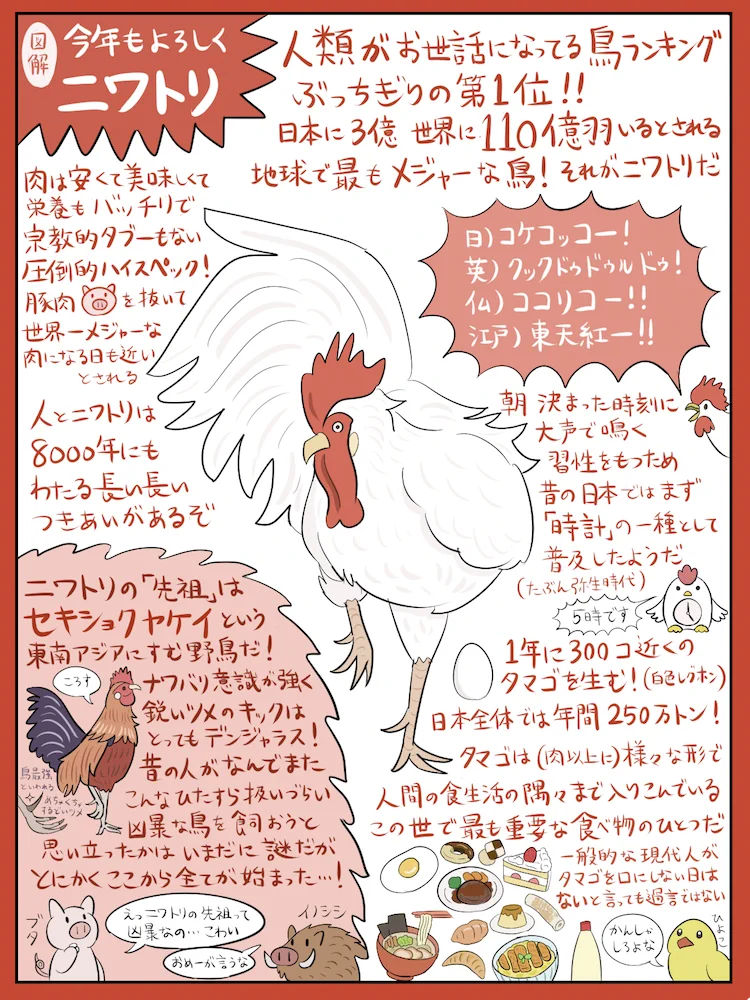 図解
今年もよろしく
ニワトリ
人類がお世話になってる鳥ランキング
ぶっちぎりの第1位!!
日本に3億 世界に110億羽いるとされる
地球で最もメジャーな鳥! それがニワトリだ
肉は安くて美味しくて
栄養もバッチリで
宗教的タブーもない
圧倒的ハイスペック!
豚肉を抜いて
世界一メジャーな
肉になる日も近い
とされる
日)コケコッコー!
英)クックドゥドゥルドゥ!
仏)ココリコー!!
江戸)東天紅ー!!
人とニワトリは
8000年にも
わたる長い長い
つきあいがあるぞ
朝 決まった時刻に
大声で鳴く
習性をもつため
昔の日本ではまず
「時計」の一種として
普及したようだ
(たぶん弥生時代)
5時です
ニワトリの「先祖」は
セキショクヤケイという
東南アジアにすむ野鳥だ!
ころす
ナワバリ意識が強く
鋭いツメのキックは
とってもデンジャラス!
鳥最強
といわれる
めちゃくちゃ
するどいツメ
昔の人がなんでまた
こんなひたすら扱いづらい
凶暴な鳥を飼おうと
思い立ったかはいまだに謎だが
とにかくここから全てが始まった…!
1年に300コ近くの
タマゴを生む!(白色レグホン)
日本全体では年間250万トン!
タマゴは(肉以上に)様々な形で
人間の食生活の隅々まで入りこんでいる
この世で最も重要な食べ物のひとつだ
一般的な現代人が
タマゴを口にしない日は
ないと言っても過言ではない
ブタ
えっニワトリの先祖って
凶暴なの…こわい
イノシシ
おめーが言うな
かんしゃ
しろよな
ひよこ